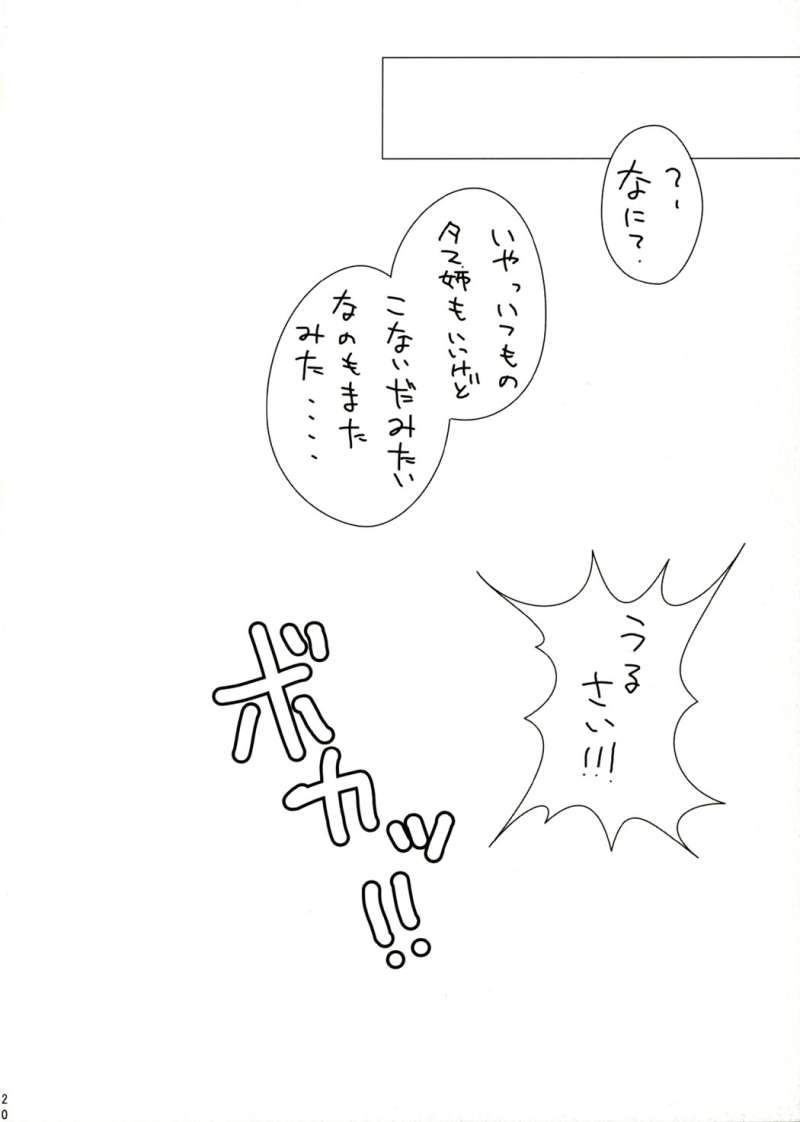 ？ー
なに？
いやっいつもの
タマ姉もいいけど
こないだみたい
なのもまた
みた・・・・
うる
さい!!!
ボカッ!!
20